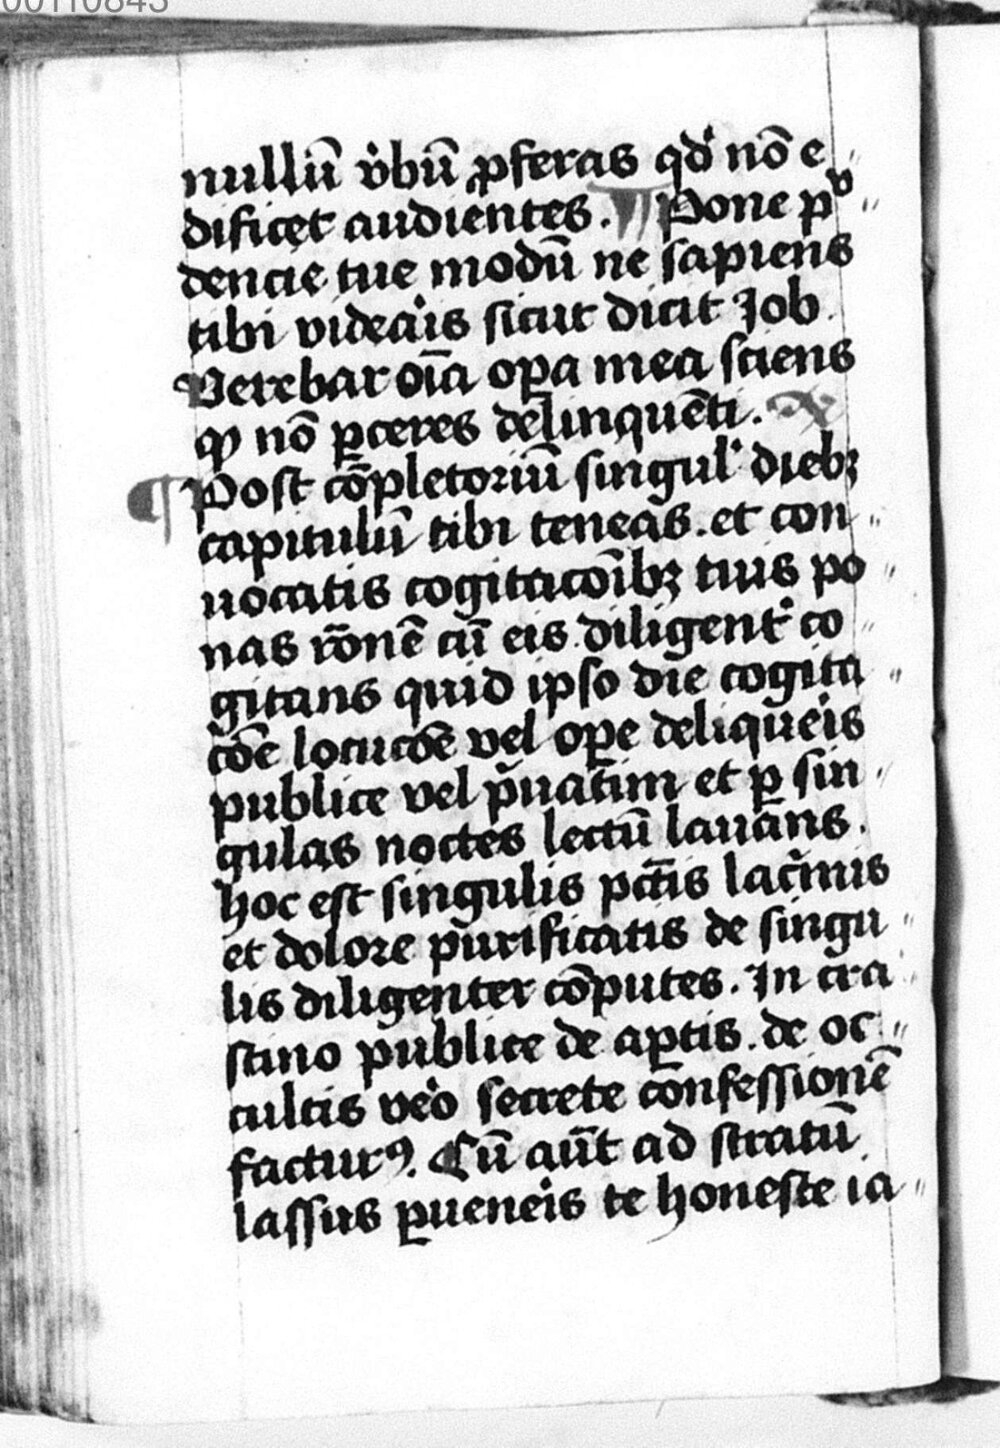 00110843
nullū v̾bū ꝓferas qd̾ nō e〃
dificet audientes. ¶ Pone pͮ〃
dencie tue modū ne sapiens
tibi videar̾is sicut dicit Job.
Verebar oīa oꝑa mea sciens
ꝙ nō ꝑceres delinquēti.
¶ Post cōpletoriū singul̾ diebꝫ
capitulū tibi teneas. et con〃
uocatis cogitacoībꝫ tuis po〃
nas rōnē cū eis diligent̾ co〃
gitans quid ipso die cogita〃
cōe locucōe vel oꝑe deliqueris
publice vel p̾uatim et ꝑ sin〃
gulas noctes lectū lauans.
hoc est singulis pctīs lac̾mis
et dolore purificatis de singu〃
lis diligenter cōputes. In cra
stino publice de aꝑtis. de oc〃
cultis ve̾o secrete confessionē
facturꝰ. Cū aūt ad stratū
lassus ꝑuene̾is te honeste ia〃